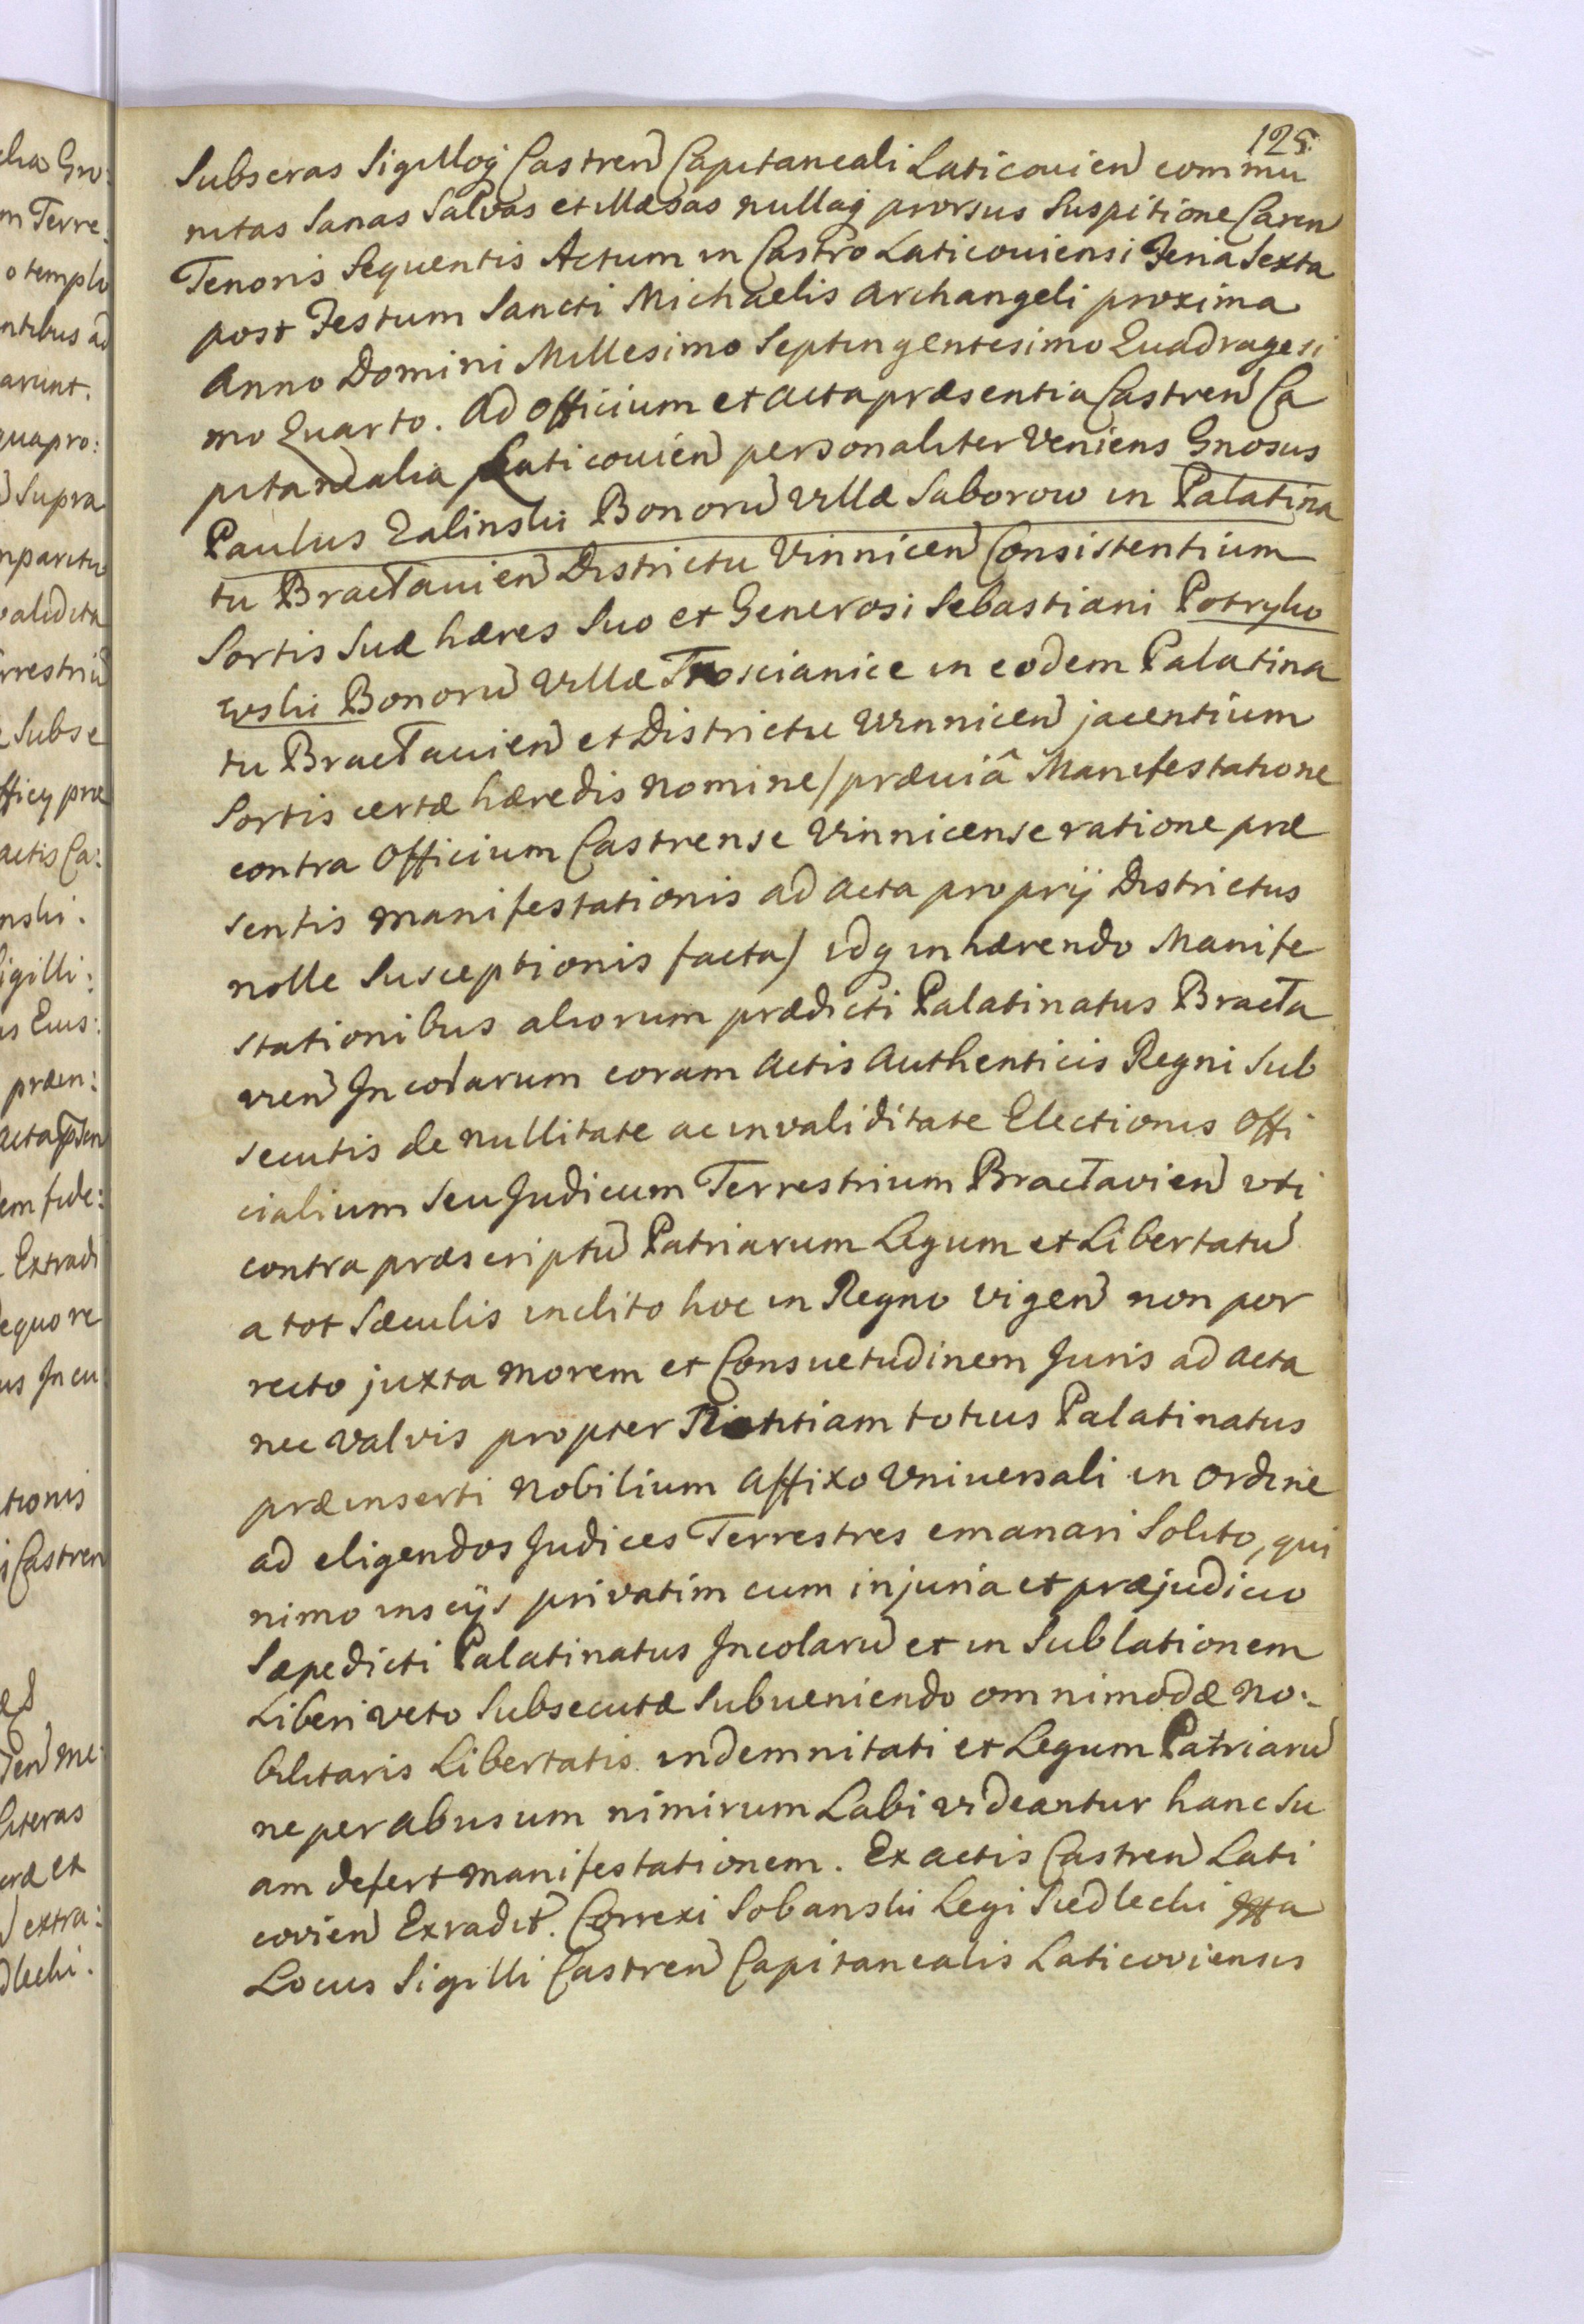 125.
Subscras Sigilloq Castren Capitaneali Laticovien commu
nitas Sanas Salvas et illæsas nullaq prorsus Suspitione Caren
Tenoris Sequentis Actum in Castro Laticoviensi Feria Sexta
post Festum Sancti Michaelis Archangeli proxima
Anno Domini Millesimo Septingentesimo Quadragesi
mo Quarto. Ad Officium et acta præsentia Castren Ca
pitanealia Laticovien personaliter Veniens Gnosus
Paulus Zalinski Bonorū Villæ Saborow in Palatina
tu Bractavien Districtu Vinnicen Consistentium
Sortis Suæ hæres Suo et Generosi Sebastiani Potryko
wski Bonorū Villæ Troscianice in eodem Palatina
tu Bractavien et Districtu Winnicen jacentium
Sortis certæ hæredis nomine / præviâ Manifestatione
contra Officium Castrense Vinnicense ratione præ
sentis manifestationis ad acta proprij Districtus
nolle Susceptionis facta / idq inhærendo Manife
stationibus aliorum prædicti Palatinatus Bracta
vien Incolarum coram Actis Authenticis Regni Sub
secutis de nullitate ac invaliditate Electionis Offi
cialium Seu Judicum Terrestrium Bractavien uti
contra præscriptū Patriarum Legum et Libertatū
a tot Sæculis inclito hoc in Regno vigen non por
recto juxta morem et Consuetudinem Juris ad acta
nec valvis propter Notitiam totius Palatinatus
præinserti Nobilium affixo Universali in ordine
ad eligendos Judices Terrestres emanari Solito, qui
nimo inscijs privatim cum injuria et præjudicio
Sæpedicti Palatinatus Incolarū et in Sublationem
Liberi veto Subsecutæ Subveniendo omnimodæ No:
bilitaris Libertatis indemnitati et Legum Patriarū
ne per abusum nimirum Labi videantur hanc Su
am defert manifestationem. Ex actis Castren Lati
covien Exradit. Correxi Sobanski Legi Siedlecki
Locus Sigilli Castren Capitanealis Laticoviensis